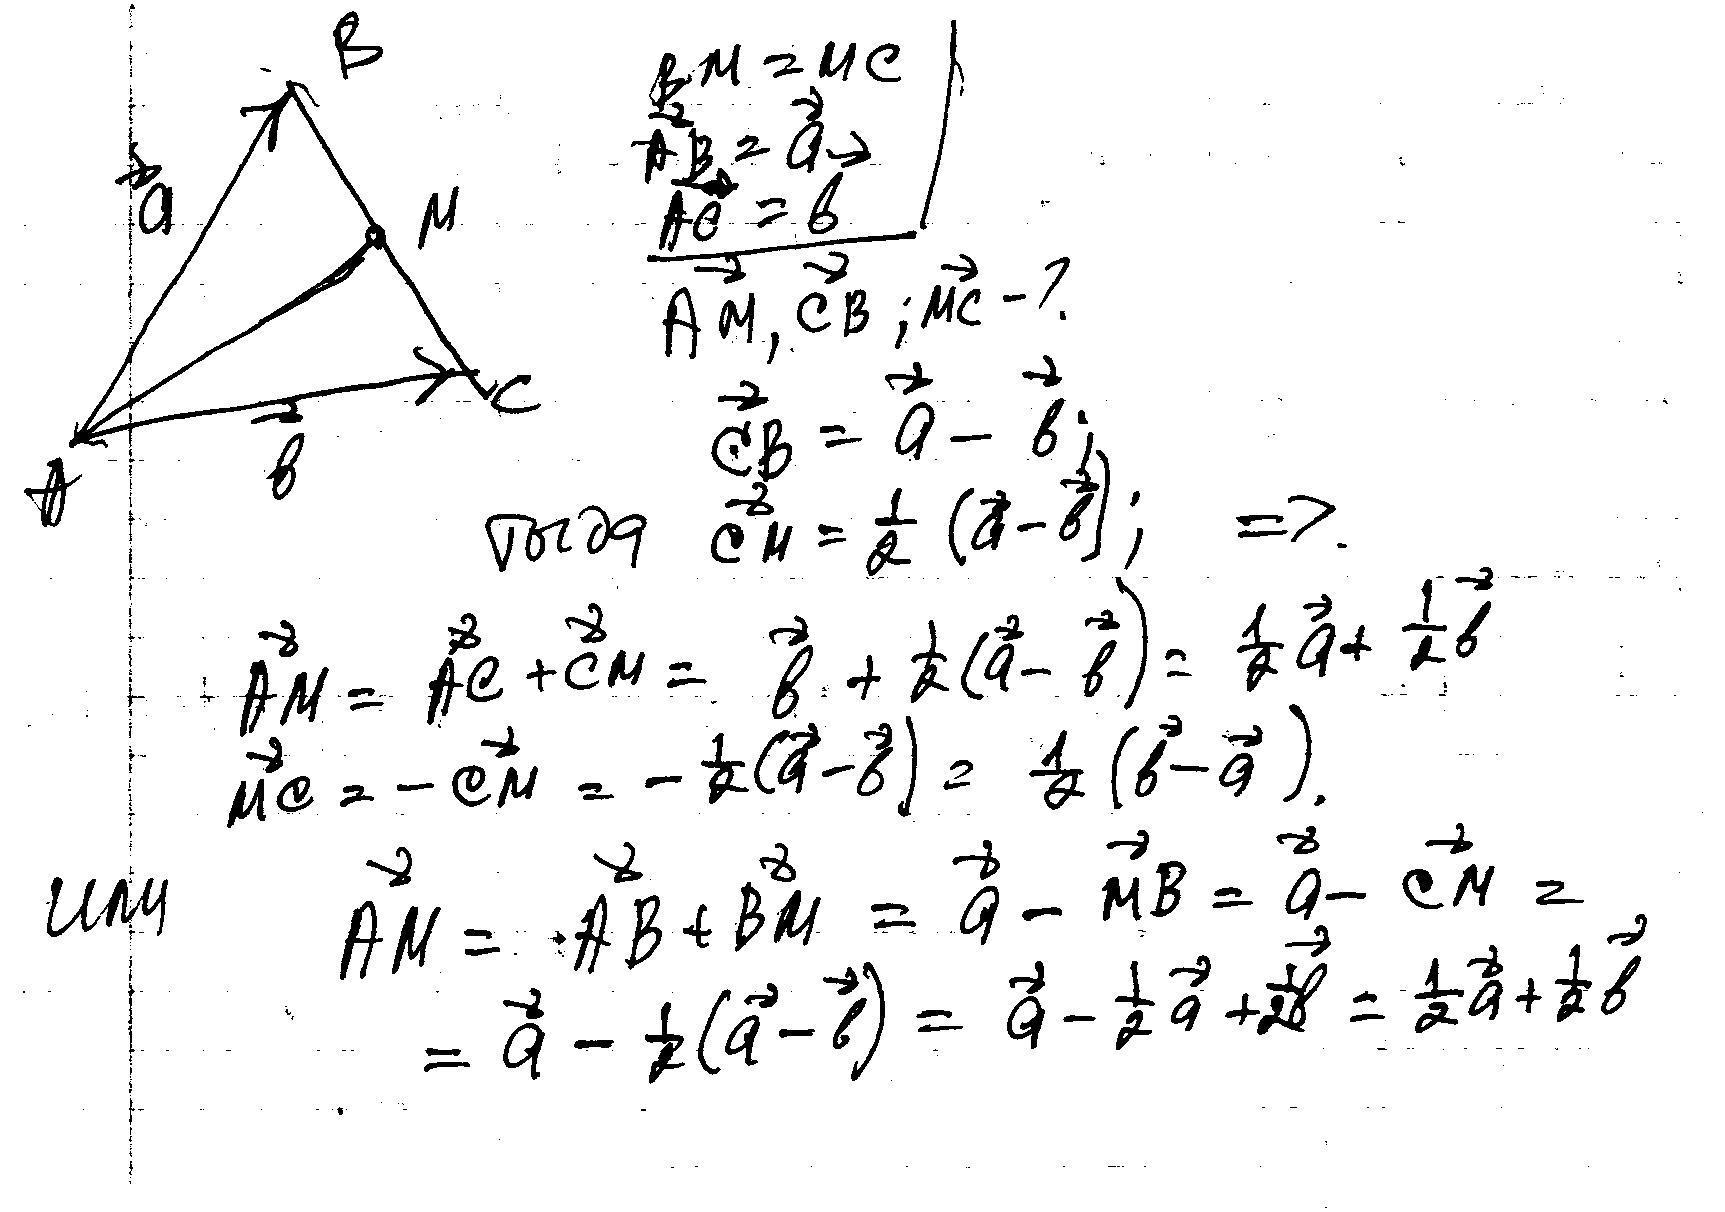 B
BM = MC
a⃗
AB⃗ = a⃗
M
AC⃗ = b⃗
AM⃗, CB⃗; MC⃗ - ?
C
b⃗
A
CB⃗ = a⃗ - b⃗;
тогда CM⃗ = 1/2 (a⃗ - b⃗); =>.
AM⃗ = AC⃗ + CM⃗ = b⃗ + 1/2 (a⃗ - b⃗) = 1/2 a⃗ + 1/2 b⃗
MC⃗ = - CM⃗ = - 1/2 (a⃗ - b⃗) = 1/2 (b⃗ - a⃗).
или AM⃗ = AB⃗ + BM⃗ = a⃗ - MB⃗ = a⃗ - CM⃗ =
= a⃗ - 1/2 (a⃗ - b⃗) = a⃗ - 1/2 a⃗ + 1/2 b⃗ = 1/2 a⃗ + 1/2 b⃗